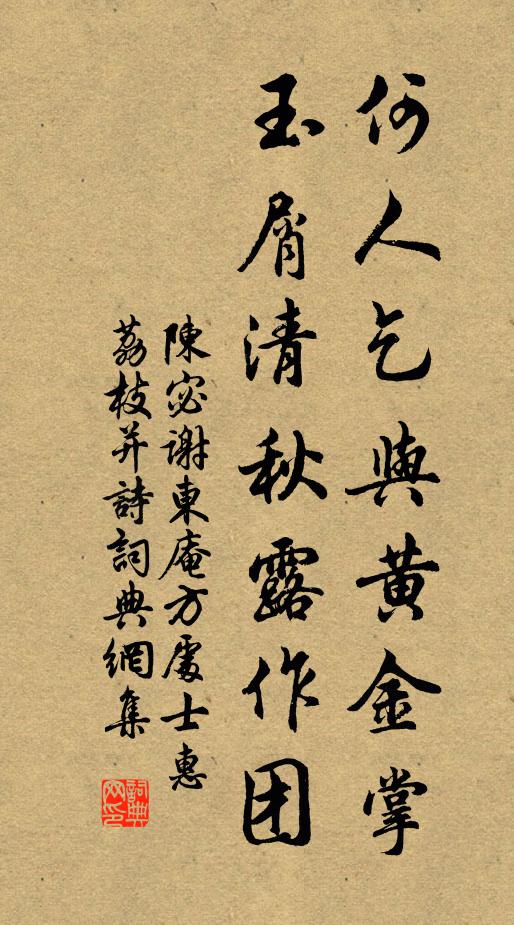 何人乞與黄金掌
玉屑清秋露作团
陳宓謝東庵方處士惠
荔枝并詩詞典網集
詞典网印